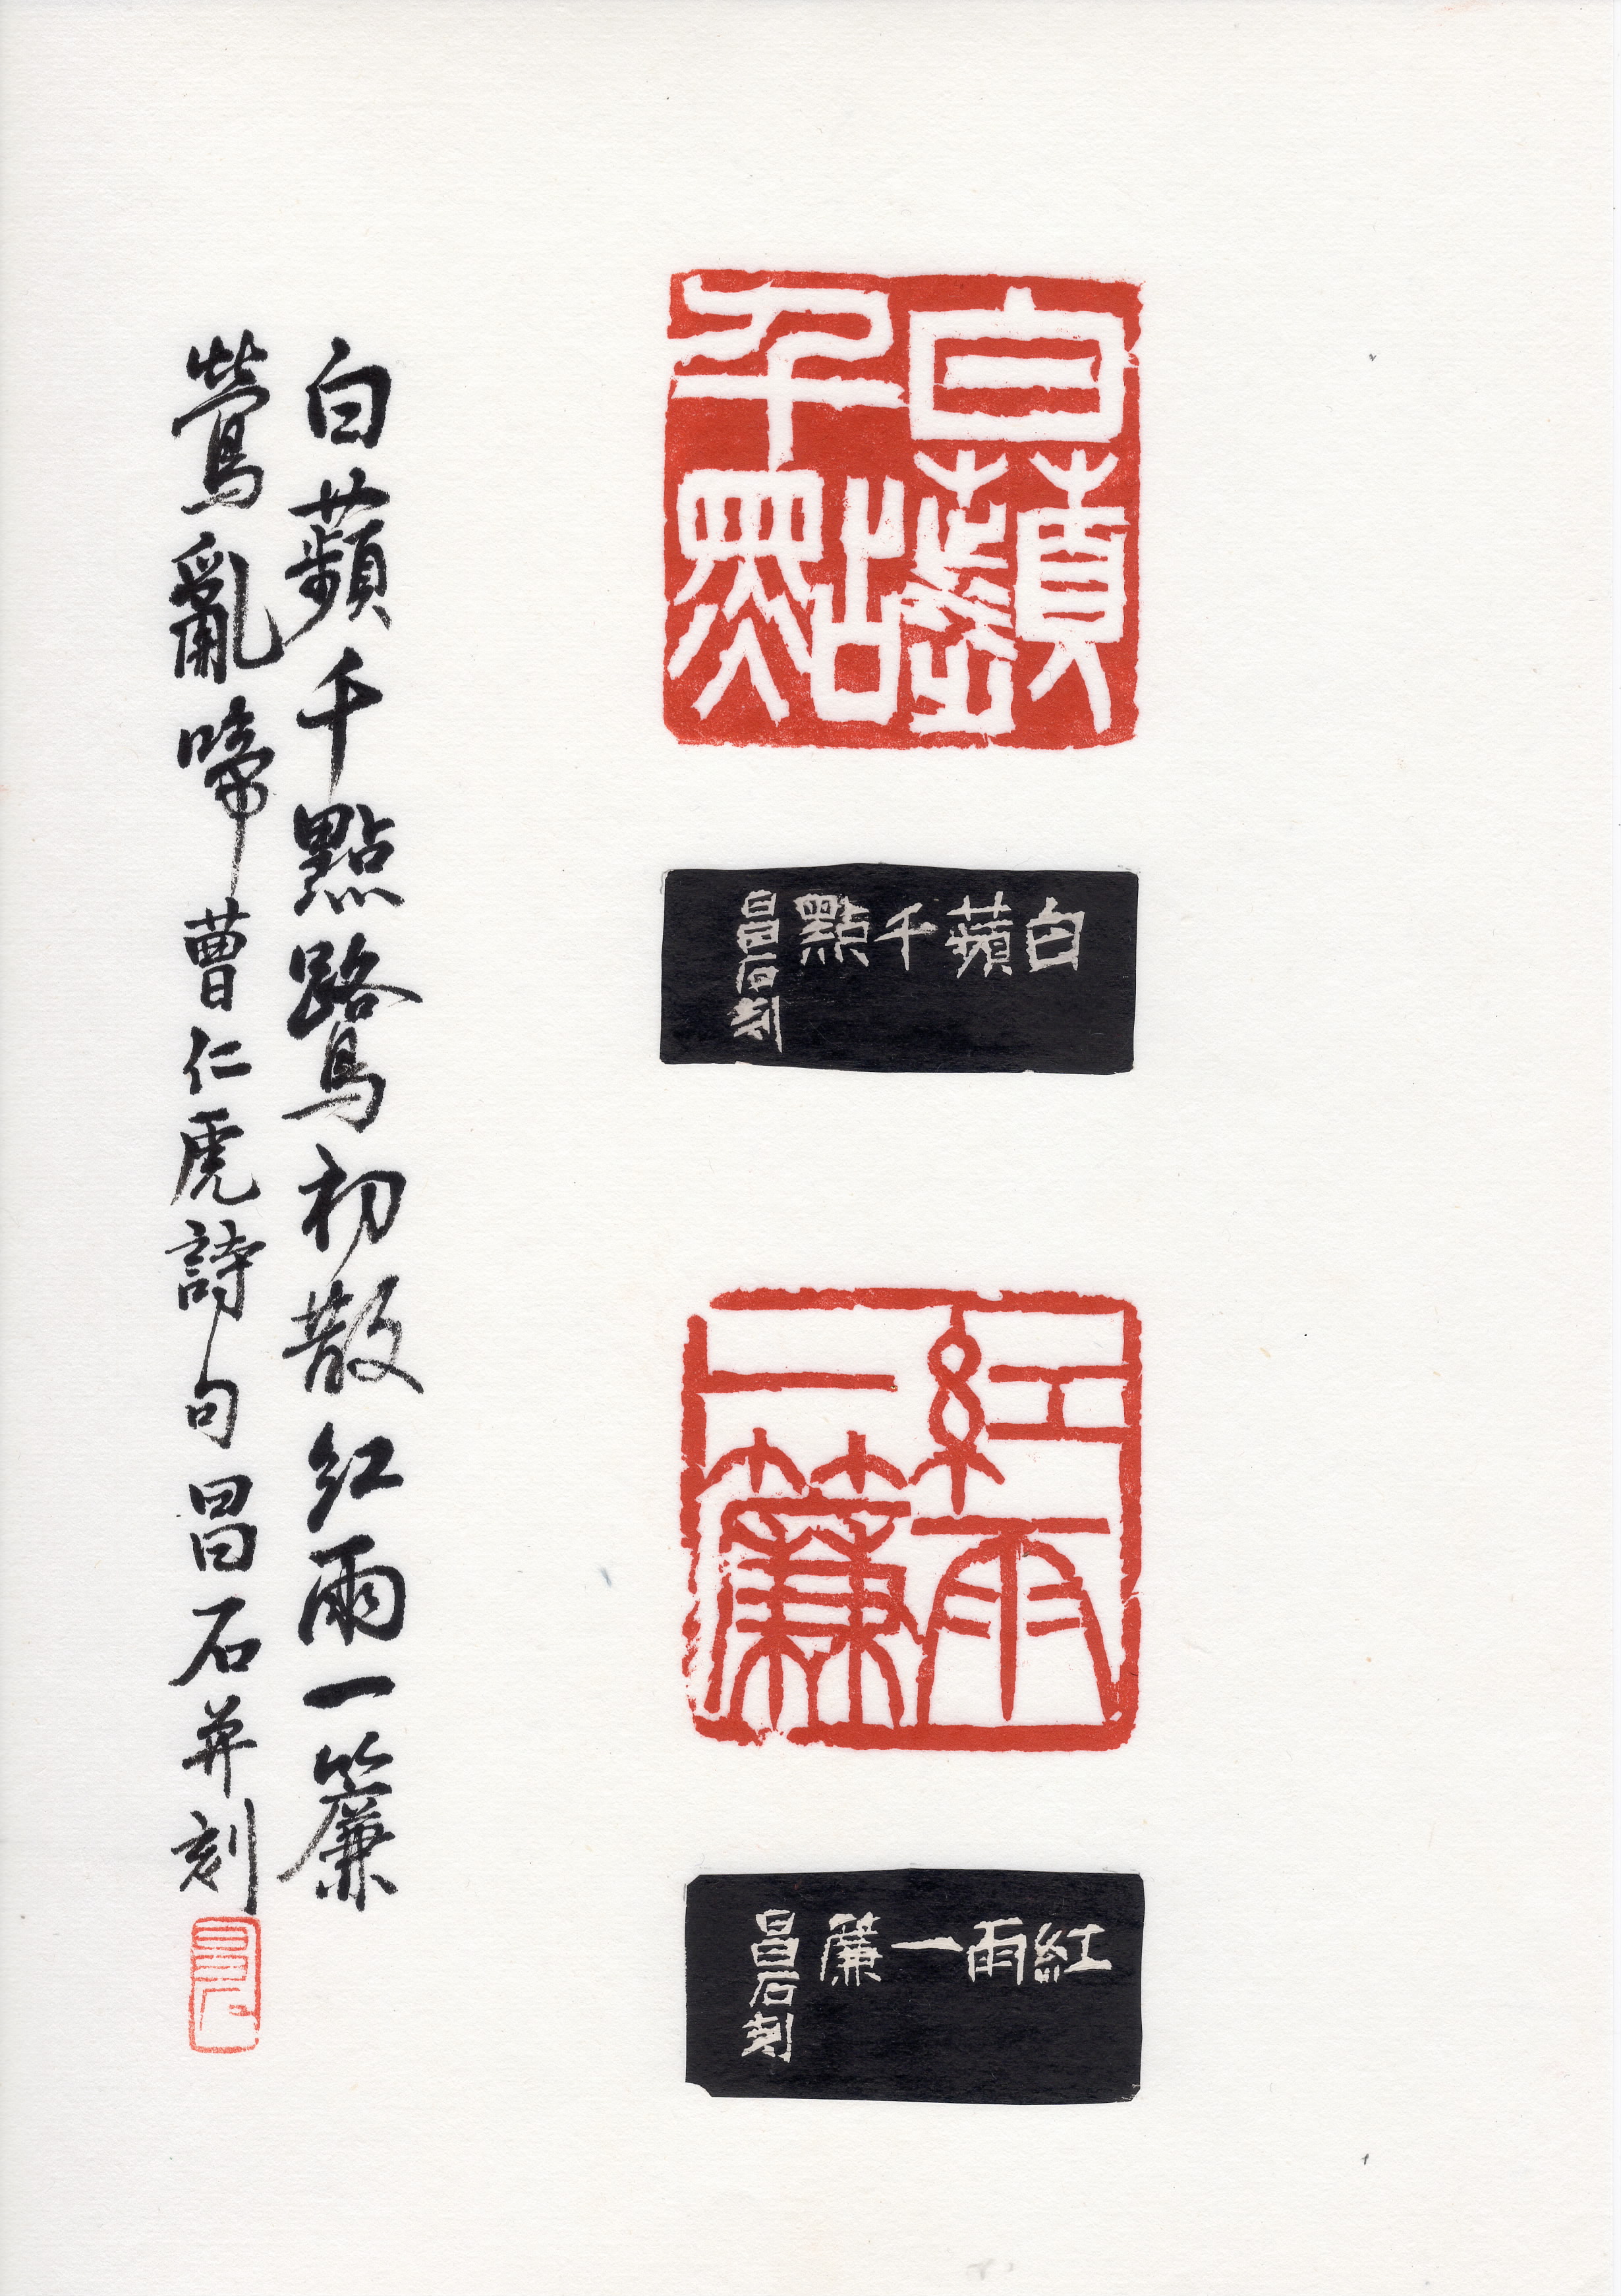 白蘋千點
白蘋千點
昌石刻
紅雨一簾
紅雨一簾
昌石刻
白蘋千點鷺初散紅雨一簾
鶯亂啼曹仁虎詩句昌石并刻
昌石